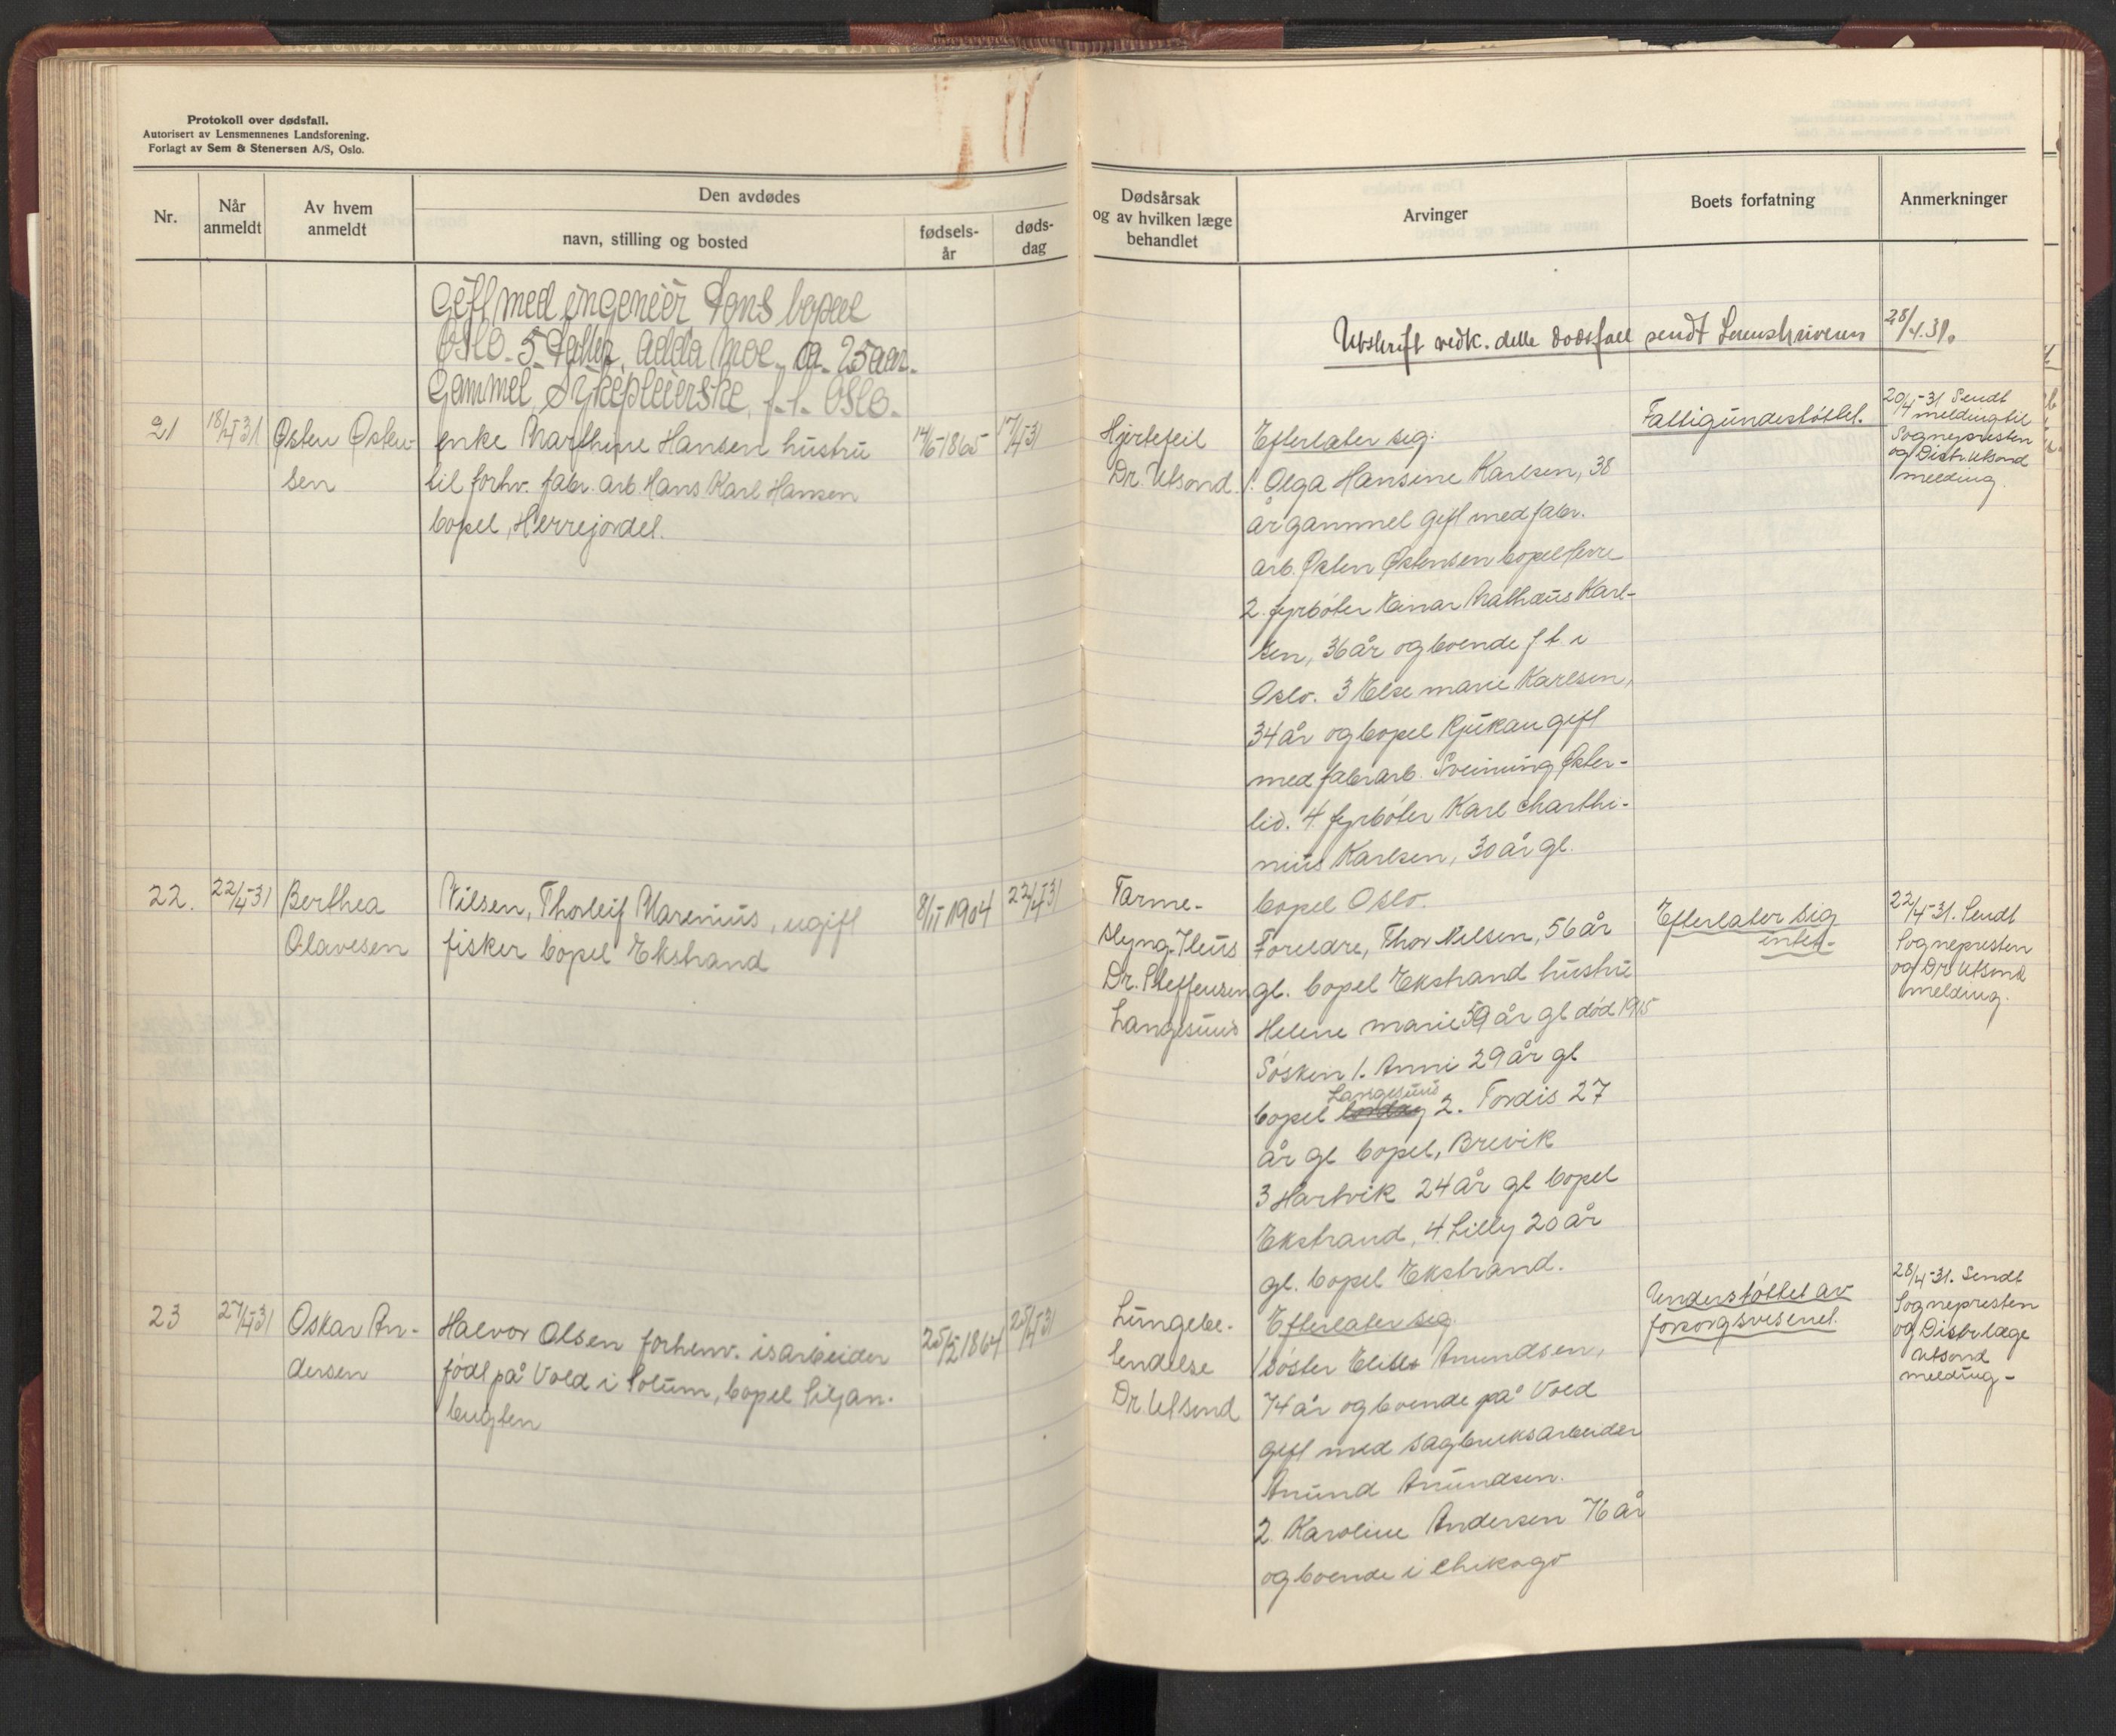 Protokoll over dødsfall.
Autorisert av Lensmennenes Landsforening.
Forlagt av Sem & Stenersen A/S, Oslo.
Nr.
Når
anmeldt
Av hvem
anmeldt
Den avdødes
navn, stilling og bosted
fødsels-
år
døds-
dag
Gift med ingeniør Tons bopæl
Oslo. 5 Datter. Adda Moe. a. 25 aar.
Gammel, Sykepleierske, f. t. Oslo.
21
18/4-31
Østen Østen-
sen
enke Marthine Hansen hustru
til forhv. fabr. arb. Hans Karl Hansen
bopel, Herrejordet.
14/6-1865
17/4-31
22.
22/4-31
Berthea
Olavesen
Nilsen, Thorleif Marenius, ugift
fisker bopel Ekstrand
8/11 1904
22/4-31
23
27/4-31
Oskar An-
dersen
Halvor Olsen forhenv. isarbeider
født på Vold i Solum, bopel Siljan-
bugten
25/2 1864
25/4-31
Dødsårsak
og av hvilken læge
behandlet
Arvinger
Boets forfatning
Anmerkninger
Utskrift vedk. dette dødsfall sendt Sorenskriveren
28/4.31.
Hjertefeil
Dr. Ulsond.
Efterlater sig:
1. Olga Hansine Karlsen, 38
år gammel gift med fabr.
arb. Østen Østensen bopel Herre
2. fyrbøter Einar Mathæus Karl-
sen, 36 år og boende f t. i
Oslo. 3 Else marie Karlsen,
34 år og bopel Rjukan gift
med fabr arb. Sveinung Øster-
lid. 4. fyrbøter Karl Marthi-
nius Karlsen, 30 år gl.
bopel Oslo.
Fattigunderstøttet.
20/4-31 Sendt
melding til
Sognepresten
og Distr. Ulsond
melding.
Tarme-
slyng-Ileus
Dr. Steffensen
Langesund
Foreldre, Thor Nilsen, 56 år
gl. bopel Ekstrand hustru
Helene marie 39 år gl død 1915
Søsken 1. Anni 29 år gl
Langesund
bopel 2. Tordis 27
år gl bopel, Brevik
3 Hartvik 24 år gl bopel
Ekstrand, 4. Lilly 20 år
gl. bopel Ekstrand.
Efterlater sig
intet-
22/4-31. Sendt
Sognepresten
og Dr Ulsond
melding.
Lungebe-
tendelse
Dr. Ulsond
Efterlater sig
1 søster Amundsen,
74 år og boende på Vold
gift med sagbruksarbeider
Anund Anundsen.
2 Karoline Andersen 76 år
og boende i Chikago
Understøttet av
forsorgsvesenet.
28/4-31. Sendt
Sognepresten
og Distr læge
Ulsond
melding-